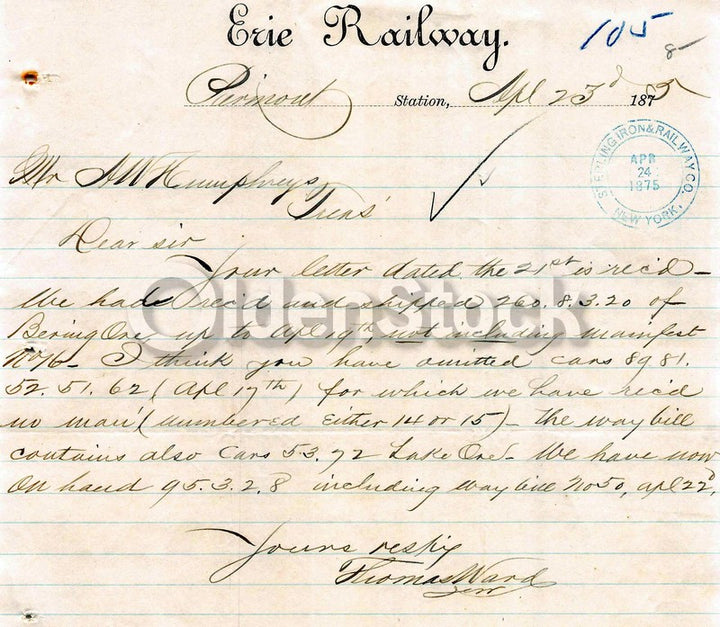 Erie Railway.
105
8-
Piermont Station, Apl 23d 1875
STERLING IRON & RAILWAY CO.
APR
24
1875
NEW YORK.
Mr A W Humphreys
Treas'
Dear sir
Your letter dated the 21st is rec'd -
We have rec'd and shipped 260.8.3.20 of
Bering Ore up to Apl 19th, not including manifest
No 16 - I think you have omitted cars 89 81.
52. 51. 62 (Apl 17th) for which we have rec'd
no man' (numbered either 14 or 15) - the way bill
contains also cars 53. 72 Lake Ore - We have now
on hand 95.3.2.8 including way bill No 50, apl 22d,
Yours respy
Thomas Ward
OldenStock